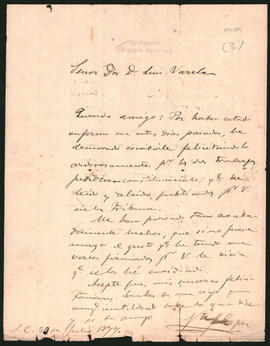 (3)
Señor Dor D. Luis Varela
Querido amigo: Por haber estado
enfermo en estos dias pasados, he
demorado escribirle felicitandolo
ardorosamente pr los dos trabajos
juridicos constitucionales, qe he
leido y releido, publicados pr V.
en la Tribuna.
Me han parecido tan acaba-
damente hechos, que si no fuese
mayor el gusto qe he tenido en
verlos firmados pr V. le diria
qe se los he envidiado.
Acepte pues mis sinceras felici-
taciones.
y es su amigo
S.C. 30 Julio 1877.